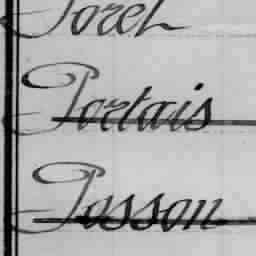 Porel
Portais
Posson